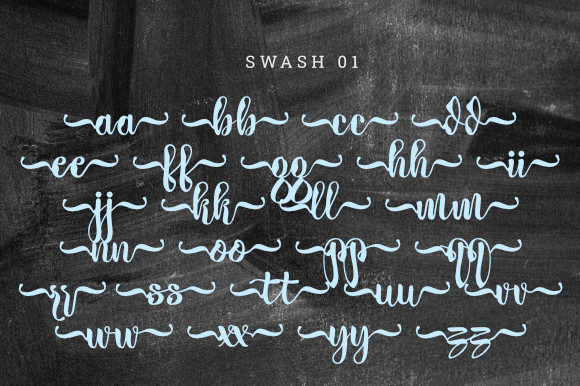 SWASH 01
aa bb cc dd
ee ff gg hh ii
jj kk ll mm
nn oo pp qq
rr ss tt uu vv
ww xx yy zz